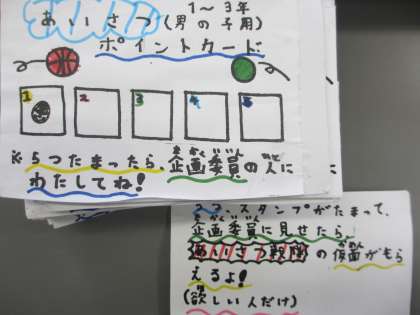 1〜3年
あいさつ(男の子用)
ポイントカード
1 2 3 4 5
※5つたまったら、企画委員の人に
わたしてね!
スタンプがたまって、
企画委員に見せたら、
あいさつ戦隊の仮面がもら
えるよ!
(欲しい人だけ)